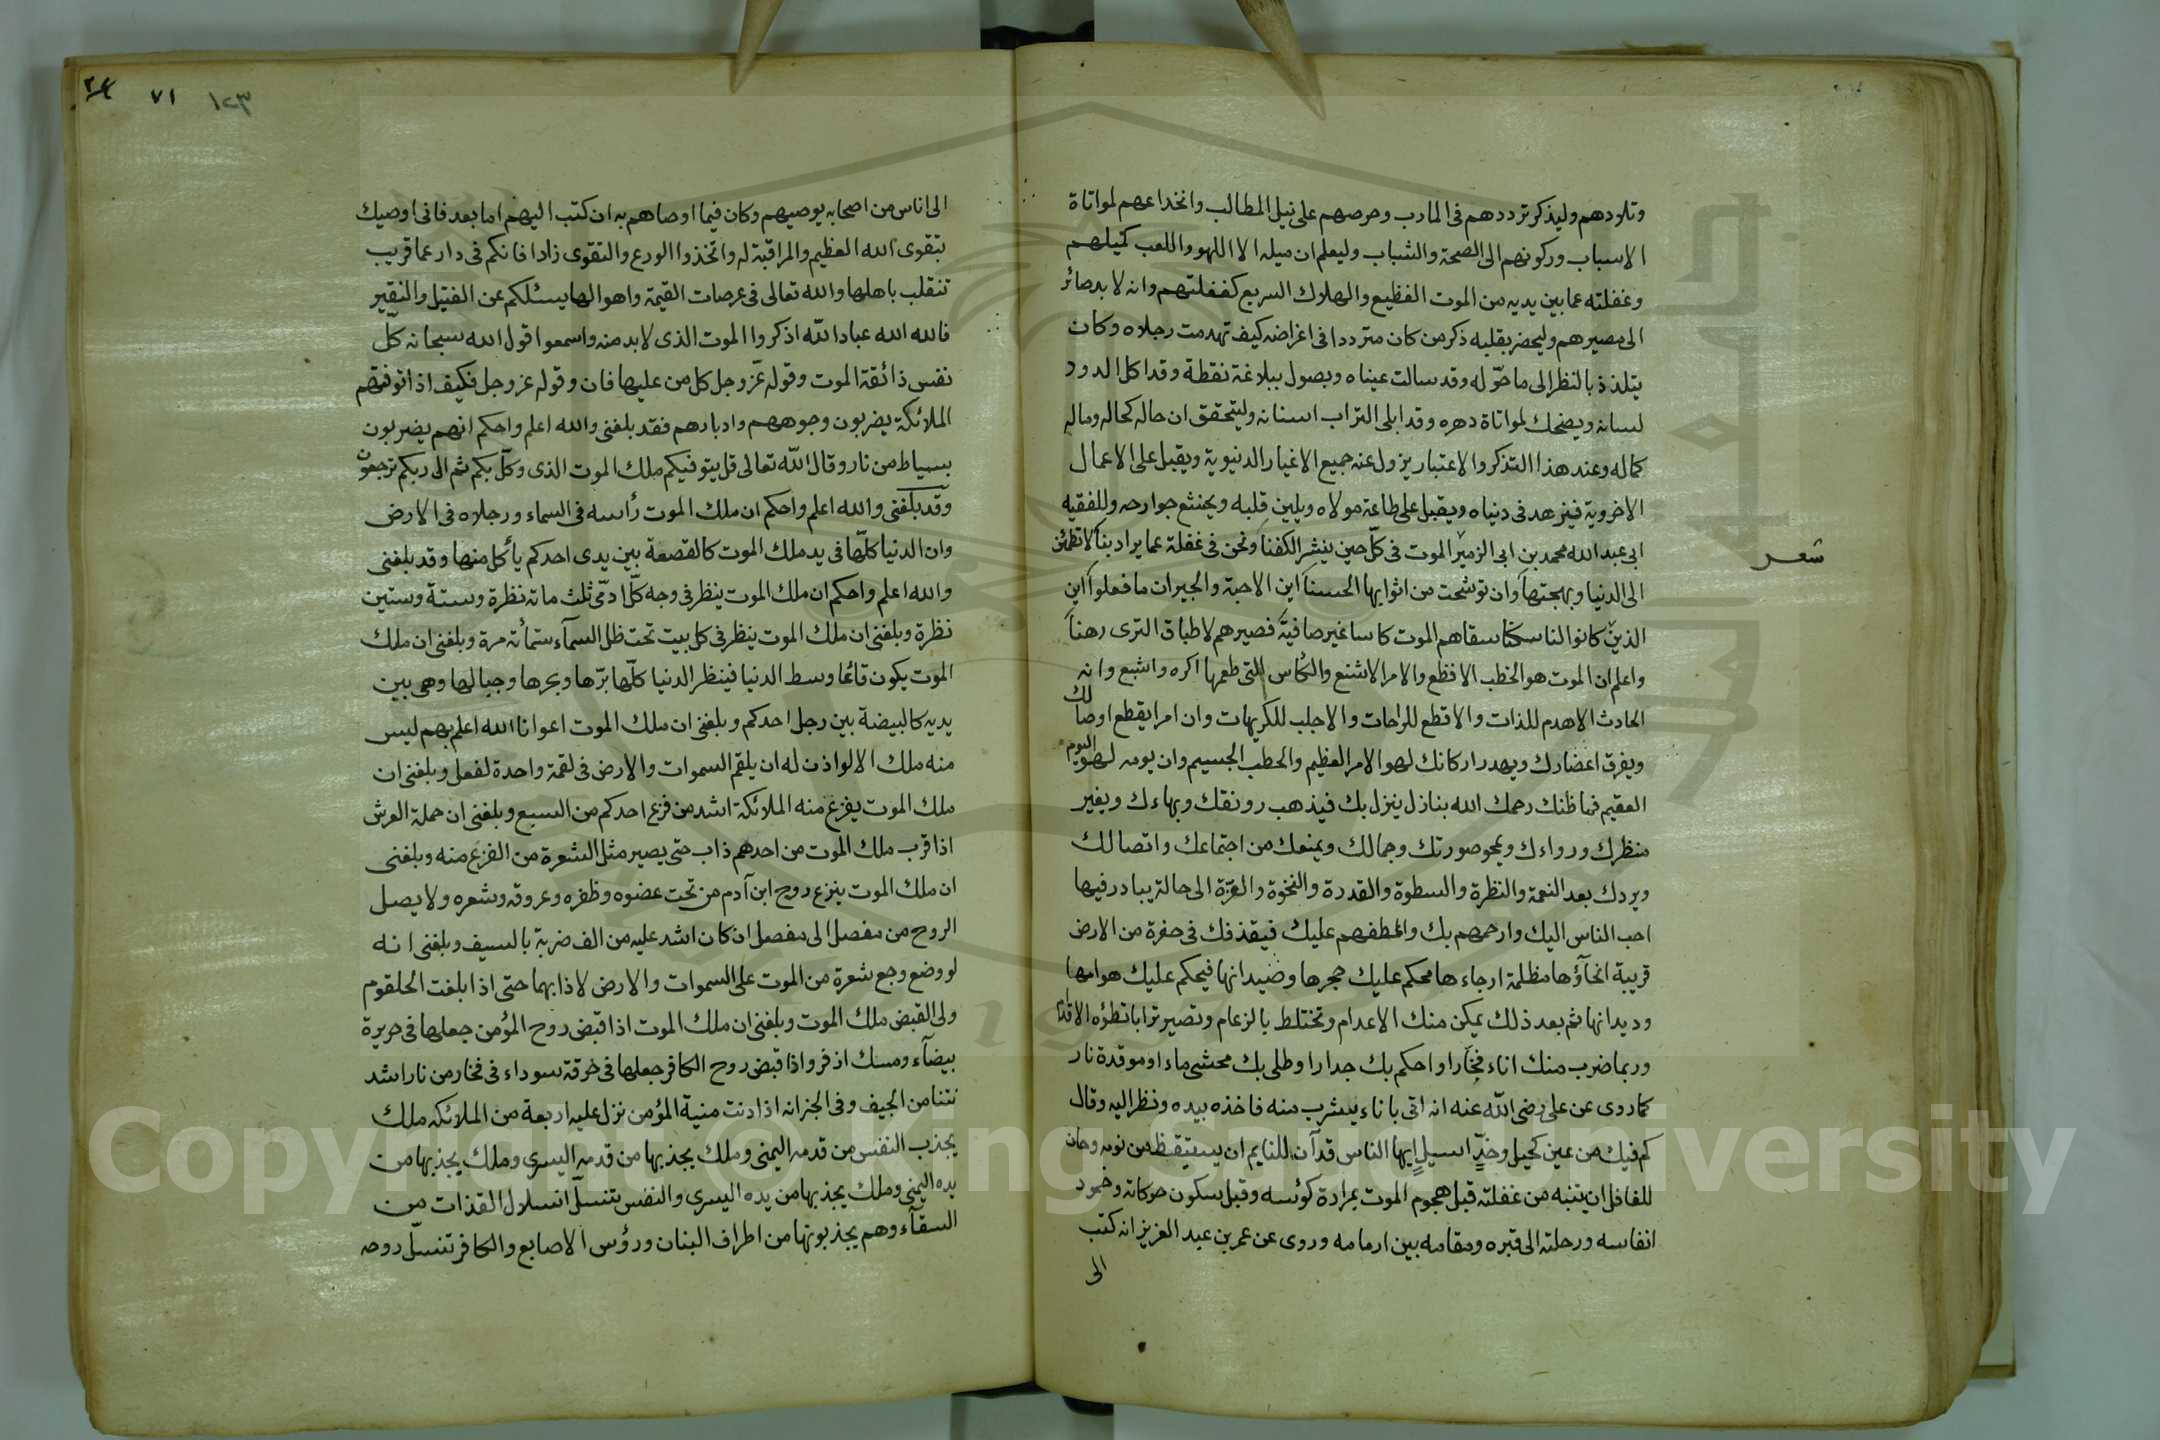 وتلاودهم وليذكر ترددهم فى المارب وحرصهم على نيل المطالب وانخداعهم لمواتاة
الاسباب وركونهم الى الصحة والشباب وليعلم ان ميله الا اللهو واللعب كميلهم
وغفلته عما بين يديه من الموت الفظيع والهلاك السريع كغفلتهم وانه لا بد صائر
الى مصيرهم وليحضر بقلبه ذكر من كان مترددا فى اغراضه كيف تهدمت رجلاه وكان
يتلذذ بالنظر الى ما خوّله وقد سالت عيناه ويصول ببلاغة نقطة وقد اكل الدود
لسانه ويضحك لمواتاة دهره وقد ابلى التراب اسنانه وليتحقق ان حاله كحاله وماله
كماله وعند هذا التذكر والاعتبار يزول عنه جميع الاغيار الدنيوية ويقبل على الاعمال
الاخروية فيزهد فى دنياه ويقبل على طاعة مولاه ويلين قلبه ويخشع جوارحه وللفقيه
ابى عبد الله محمد بن ابى الزمنين الموت فى كلّ حين ينشر الكفنا ونحن فى غفلة عما يراد بنا لا تطمئن
شعر
الى الدنيا وبهجتها وان توشحت من اثوابها الحسنا اين الاحبة والجيران ما فعلوا اين
الذين كانوا لنا سكنا سقاهم الموت كاسا غير صافية فصيرهم لاطباق الثرى رهنا
واعلم ان الموت هو الخطب الافظع والامر الاشنع والكاس التى طعمها اكره وابشع وانه
الحادث الاهدم للذات والاقطع للراحات والاجلب للكريهات وان امرا يقطع اوصالك
ويفرق اعضاءك ويهدر اركانك لهو الامر العظيم والخطب الجسيم وان يومه لهو اليوم
العقيم فما ظنك رحمك الله بنازل ينزل بك فيذهب رونقك وبهاءك ويغير
منظرك ورواءك ويمحو صورتك وجمالك ويمنعك من اجتماعك واتصالك
ويردك بعد النعمة والنظرة والسطوة والقدرة والنخوة والعزة الى حالة يبادر فيها
احب الناس اليك وارحمهم بك واعطفهم عليك فيقذفك فى حفرة من الارض
قريبة انحاؤها مظلمة ارجاءها محكم عليك حجرها وضيدانها فيحكم عليك هوامها
وديدانها ثم بعد ذلك يمكن منك الاعدام وتختلط بالرغام وتصير ترابا تطؤه الاقدام
وربما ضرب منك اناء فخار او احكم بك جدار او طلى بك محشى ماء او موقدة نار
كما روى عن على رضى الله عنه انه اتى باناء يشرب منه فاخذه بيده ونظر اليه وقال
كم فيك من عين كحيل وخدّ اسيل ايها الناس قد آن للنايم ان يستيقظ من نومه وحان
للغافل ان يتنبه من غفلته قبل هجوم الموت بمرارة كوئسه وقبل سكون حركاته وخمود
انفاسه ورحلته الى قبره ومقامه بين ارمامه وروى عن عمر بن عبد العزيز انه كتب
الى
٧١ ١٢٣
الى اناس من اصحابه يوصيهم وكان فيما اوصاهم به ان كتب اليهم اما بعد فانى اوصيك
بتقوى الله العظيم والمراقبة له واتخذوا الورع والتقوى زادا فانكم فى دار عما قريب
تنقلب باهلها والله تعالى فى عرصات القيمة واهوالها يسئلكم عن الفتيل والنقير
فالله الله عباد الله اذكروا الموت الذى لا بد منه واسمعوا قول الله سبحانه كلّ
نفس ذائقة الموت وقوله عزّ وجل كل من عليها فان وقوله عز وجل فكيف اذا توفتهم
الملائكة يضربون وجوههم وادبارهم فقد بلغنى والله اعلم واحكم انهم يضربون
بسياط من نار وقال الله تعالى قل يتوفيكم ملك الموت الذى وكلّ بكم ثم الى ربكم ترجعون
وقد بلغنى والله اعلم واحكم ان ملك الموت رأسه فى السماء ورجلاه فى الارض
وان الدنيا كلّها فى يد ملك الموت كالقصعة بين يدى احدكم يأكل منها وقد بلغنى
والله اعلم واحكم ان ملك الموت ينظر فى وجه كلّ ادمّى ثلث مائة نظرة وستة وستين
نظرة وبلغنى ان ملك الموت ينظر فى كل بيت تحت ظل السمآء ستمأئة مرة وبلغنى ان ملك
الموت يكون قائما وسط الدنيا فينظر الدنيا كلّها برّها وبحرها وجبالها وهى بين
يديه كالبيضة بين رجل احدكم وبلغنى ان ملك الموت اعوانا الله اعلم بهم ليس
منه ملك الا لو اذن له ان يلقم السموات والارض فى لقمة واحدة لفعل وبلغنى ان
ملك الموت يفزع منه الملائكة اشد من فزع احدكم من السبع وبلغنى ان حملة العرش
اذا قرب ملك الموت من احدهم ذاب حتى يصير مثل الشعرة من الفزع منه وبلغنى
ان ملك الموت ينزع روح ابن آدم من تحت عضوه وظفره وعروقه وشعره ولا يصل
الروح من مفصل الى مفصل ان كان اشد عليه من الف ضربة بالسيف وبلغنى انه
لو وضع وجع شعرة من الموت على السموات والارض لاذابهما حتى اذا بلغت الحلقوم
ولى القبض ملك الموت وبلغنى ان ملك الموت اذا قبض روح المؤمن جعلها فى حريرة
بيضآء ومسك اذفر واذا قبض روح الكافر جعلها فى خرقة سوداء فى فخار من نار اشد
نتنا من الجيف وفى الخبر انه اذا دنت منية المؤمن نزل عليه اربعة من الملائكه ملك
يجذب النفس من قدمه اليمنى وملك يجذبها من قدمه اليسرى وملك يجذبها من
يده اليمنى وملك يجذبها من يده اليسرى والنفس تنسلّ انسلال القذات من
السقآء وهم يجذبونها من اطراف البنان ورؤس الاصابع والكافر تنسلّ روحه
Copyright © King Saud University